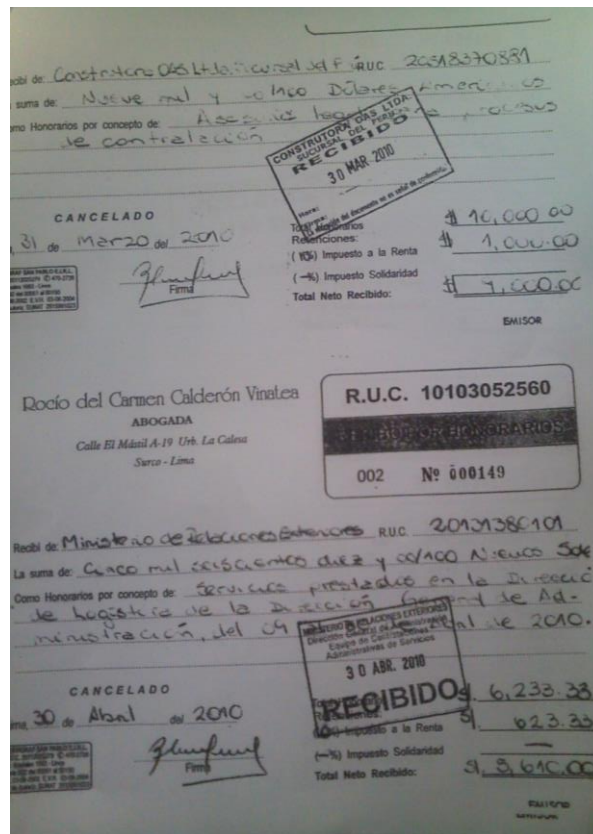 Recibí de: Constructora OAS Ltda. Sucursal del P RUC 20518370881
La suma de: Nueve mil y 00/100 Dólares Americanos
Como Honorarios por concepto de: Asesoría procesos
de contratación
CONSTRUTORA OAS LTDA.
SUCURSAL DEL PERÚ
RECIBIDO
30 MAR 2010
Hora:
CANCELADO
31 de Marzo del 2010
Firma
Total Honorarios $ 10,000.00
Retenciones: $ 1,000.00
(10%) Impuesto a la Renta
(—%) Impuesto Solidaridad
Total Neto Recibido: $ 9,000.00
EMISOR
Rocío del Carmen Calderón Vinatea
ABOGADA
Calle El Mástil A-19 Urb. La Calesa
Surco - Lima
R.U.C. 10103052560
RECIBO POR HONORARIOS
002 Nº 000149
Recibí de: Ministerio de Relaciones Exteriores RUC 20131380101
La suma de: Cinco mil seiscientos diez y 00/100 Nuevos Sole
Como Honorarios por concepto de: Servicios prestados en la Direcció
de Logística de la Dirección General de Ad-
ministración, del 04 Abril de 2010.
MINISTERIO DE RELACIONES EXTERIORES
Dirección General de Administración
Equipo de Contrataciones
Administrativas de Servicios
30 ABR. 2010
RECIBIDO
CANCELADO
30 de Abril del 2010
Firma
S/. 6,233.33
S/. 623.33
Impuesto a la Renta
(—%) Impuesto Solidaridad —
Total Neto Recibido: S/. 5,610.00